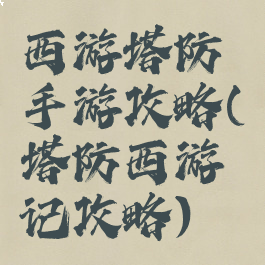 西游塔防
手游攻略(
塔防西游
记攻略)